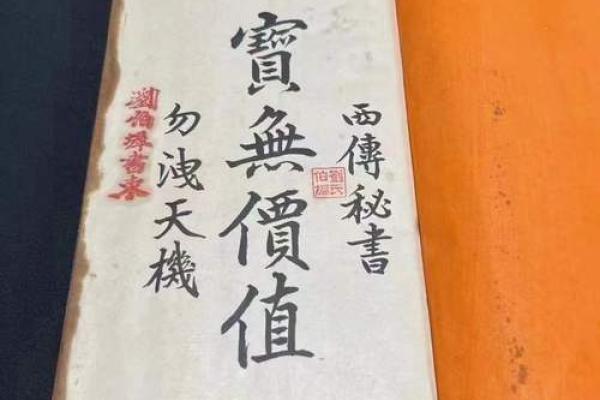 西傳秘書
劉氏
伯
寶無價值
勿洩天機
劉伯 書柬